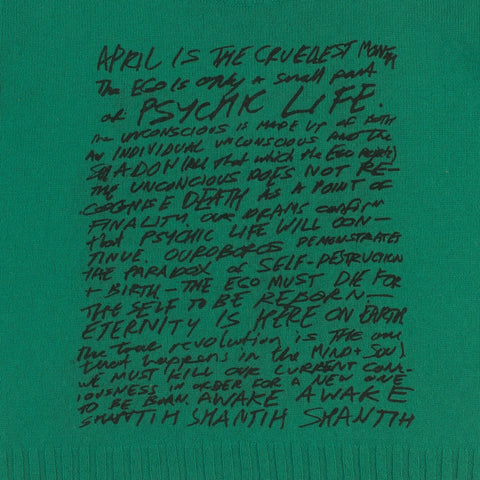 APRIL IS THE CRUELEST MONTH
The EGO is only a small part
of PSYCHIC LIFE.
The UNCONSCIOUS IS MADE UP OF BOTH
AN INDIVIDUAL UNCONSCIOUS AND the
SHADOW (All that which the EGO rejects)
THE UNCONCIOUS DOES NOT RE-
COGNISE DEATH AS A POINT OF
FINALITY. OUR DREAMS confirm
that PSYCHIC LIFE WILL CON-
TINUE. OUROBOROS DEMONSTRATES
THE PARADOX of SELF-DESTRUCTION
+ BIRTH - THE EGO MUST DIE FOR
THE SELF TO BE REBORN -
ETERNITY IS HERE ON EARTH
The true revolution is THE one
that happens in the MIND + SOUL
WE MUST KILL OUR CURRENT CONC-
IOUSNESS IN ORDER FOR A NEW ONE
TO BE BORN. AWAKE AWAKE
SHANTIH SHANTIH SHANTIH